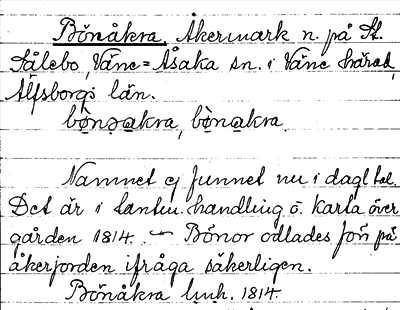 Bönåkra, Åkermark n. på St.
Sålebo, Väne=Åsaka sn. i Väne härad,
Älfsborgs län.
bö̀nəa̠kra, bö̀na̠kra.
Namnet ej funnet nu i dagl tal.
Det är i lantm. handling o. karta över
gården 1814. — Bönor odlades förr på
åkerjorden ifråga säkerligen.
Bönåkra 1814.